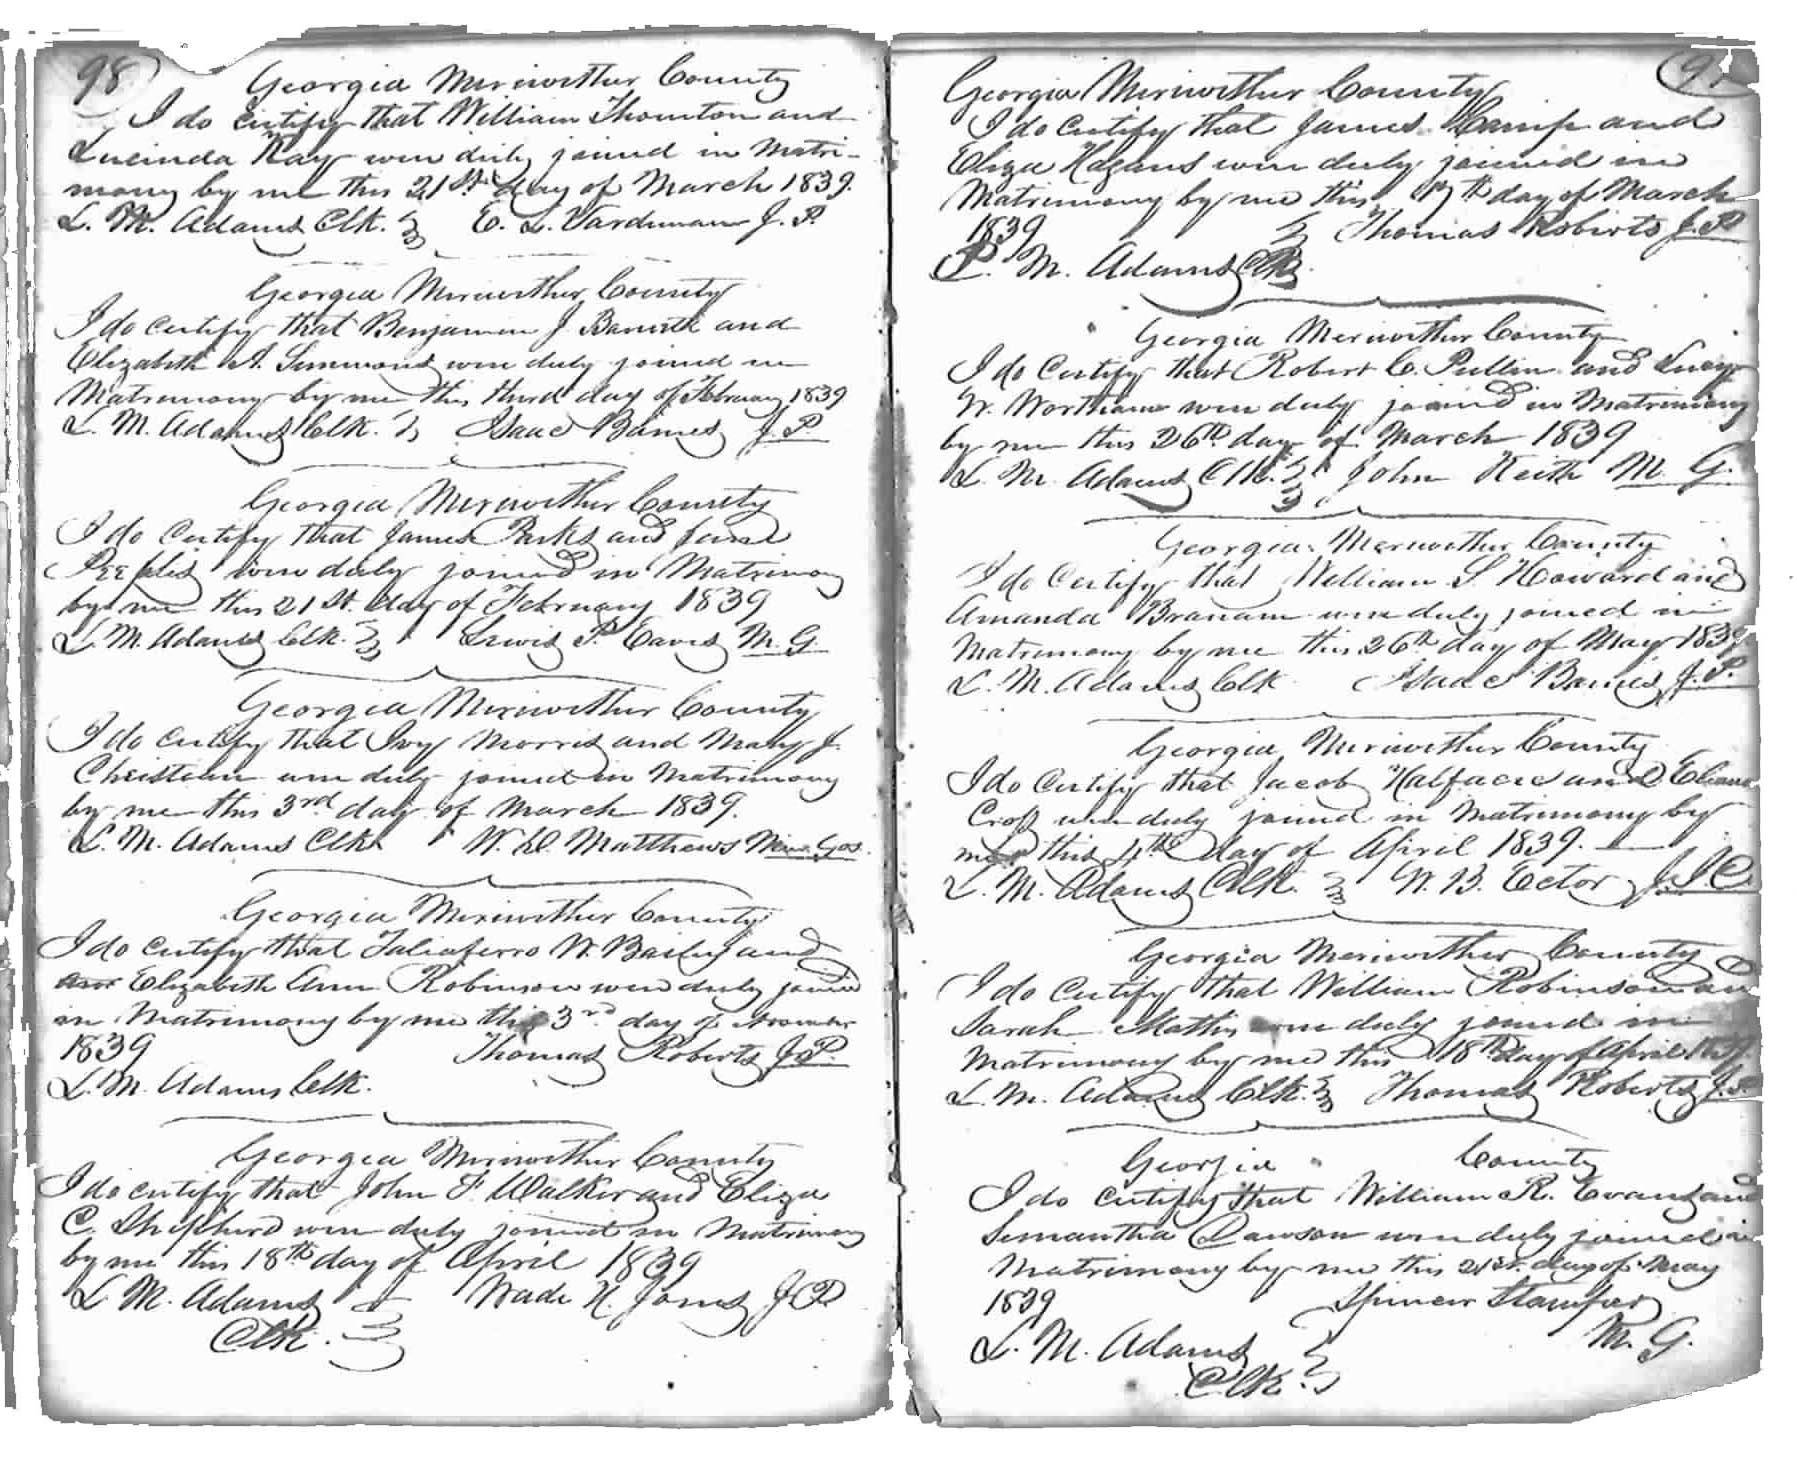 98
Georgia Meriwether County
I do certify that William Thornton and
Lucinda Ray were duly joined in Matri-
mony by me this 21st day of March 1839.
L. M. Adams Clk. E. L. Vardeman J. P.
Georgia Meriwether County
I do certify that Benjamin J. and
Elizabeth A. Simmons were duly joined in
Matrimony by me this third day of February 1839
L. M. Adams Clk. Isaac Barnes J. P.
Georgia Meriwether County
I do certify that James Parks and
Peeples were duly joined in Matrimony
by me this 21st. day of February 1839
L. M. Adams Clk. Lewis P. M. G.
Georgia Meriwether County
I do certify that Ivy Morris and Mary J.
Christian were duly joined in Matrimony
by me this 3rd day of March 1839.
L. M. Adams Clk W. D. Matthews Min. Gos.
Georgia Meriwether County
I do certify that Taliaferro W. Bailey and
Elizabeth Ann Robinson were duly joined
in Matrimony by me this 3rd day of
1839 Thomas Roberts J. P.
L. M. Adams Clk.
Georgia Meriwether County
I do certify that John F. Walker and Eliza
C. Shepherd were duly joined in Matrimony
by me this 18th day of April 1839
L M. Adams Wade H. Jones J P
Clk.
Georgia Meriwether County
I do certify that James Camp and
Eliza were duly joined in
Matrimony by me this 17th day of March
1839 Thomas Roberts J. P
L. M. Adams Clk
Georgia Meriwether County
I do certify that Robert C. Pullin and Lucy
W. Wortham were duly joined in Matrimony
by me this 26th day of March 1839
L. M. Adams Clk. John Keith M. G.
Georgia Meriwether County
I do certify that William S. Howard and
Amanda Branam were duly joined in
Matrimony by me this 26th day of May 1839
L. M. Adams Clk Isaac Barnes J. P.
Georgia Meriwether County
I do certify that Jacob Halfacre and
Cross were duly joined in Matrimony by
me this 4th day of April 1839.
L. M. Adams Clk. W. B. Ector J. I. C.
Georgia Meriwether County
I do certify that William Robinson an
Sarah Mathis were duly joined in
Matrimony by me this 18th day of April 1839.
L. M. Adams Clk. Thomas Roberts J. P
Georgia County
I do certify that William R. Evans and
Simantha Dawson were duly joined in
Matrimony by me this 21st. day of May
1839 Spencer Stamper
L. M. Adams M. G.
Clk.